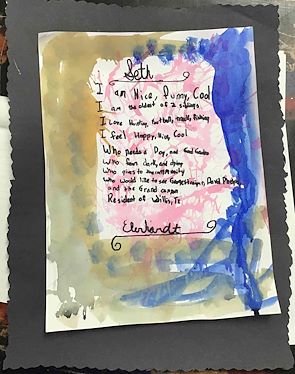 Seth
I am Nice, Funny, Cool
I am the oldest of 2 siblings
I Love Hunting, Football,
I feel Happy, Nice, Cool
Who needs a Dog, and Good Grades
Who fears death, and dying
Who gives to my community
who would like to see George Strait, David
and the Grand canyon
Resident of Willis, Tx
Ehrhardt